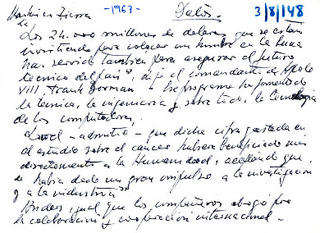 -1967- Datos. 3/8/148
Los 24.000 millones de dolares que se están
invirtiendo para colocar un hombre en la luna
han servido también para asegurar el futuro
tecnico del país", dijo el comandante de Apolo
VIII, Frank Borman. - El programa ha fomentado
la tecnica, la ingenieria y sobre todo, la tecnologia
de los computadores.
Lovell - admitió - que dicha cifra gastada en
el estudio sobre el cáncer hubiera beneficiado más
directamente a la Humanidad,
se había dado un gran impulso a la investigación
y a la industria.
igual que los compañeros abogó por
la colaboración y cooperación internacional.-